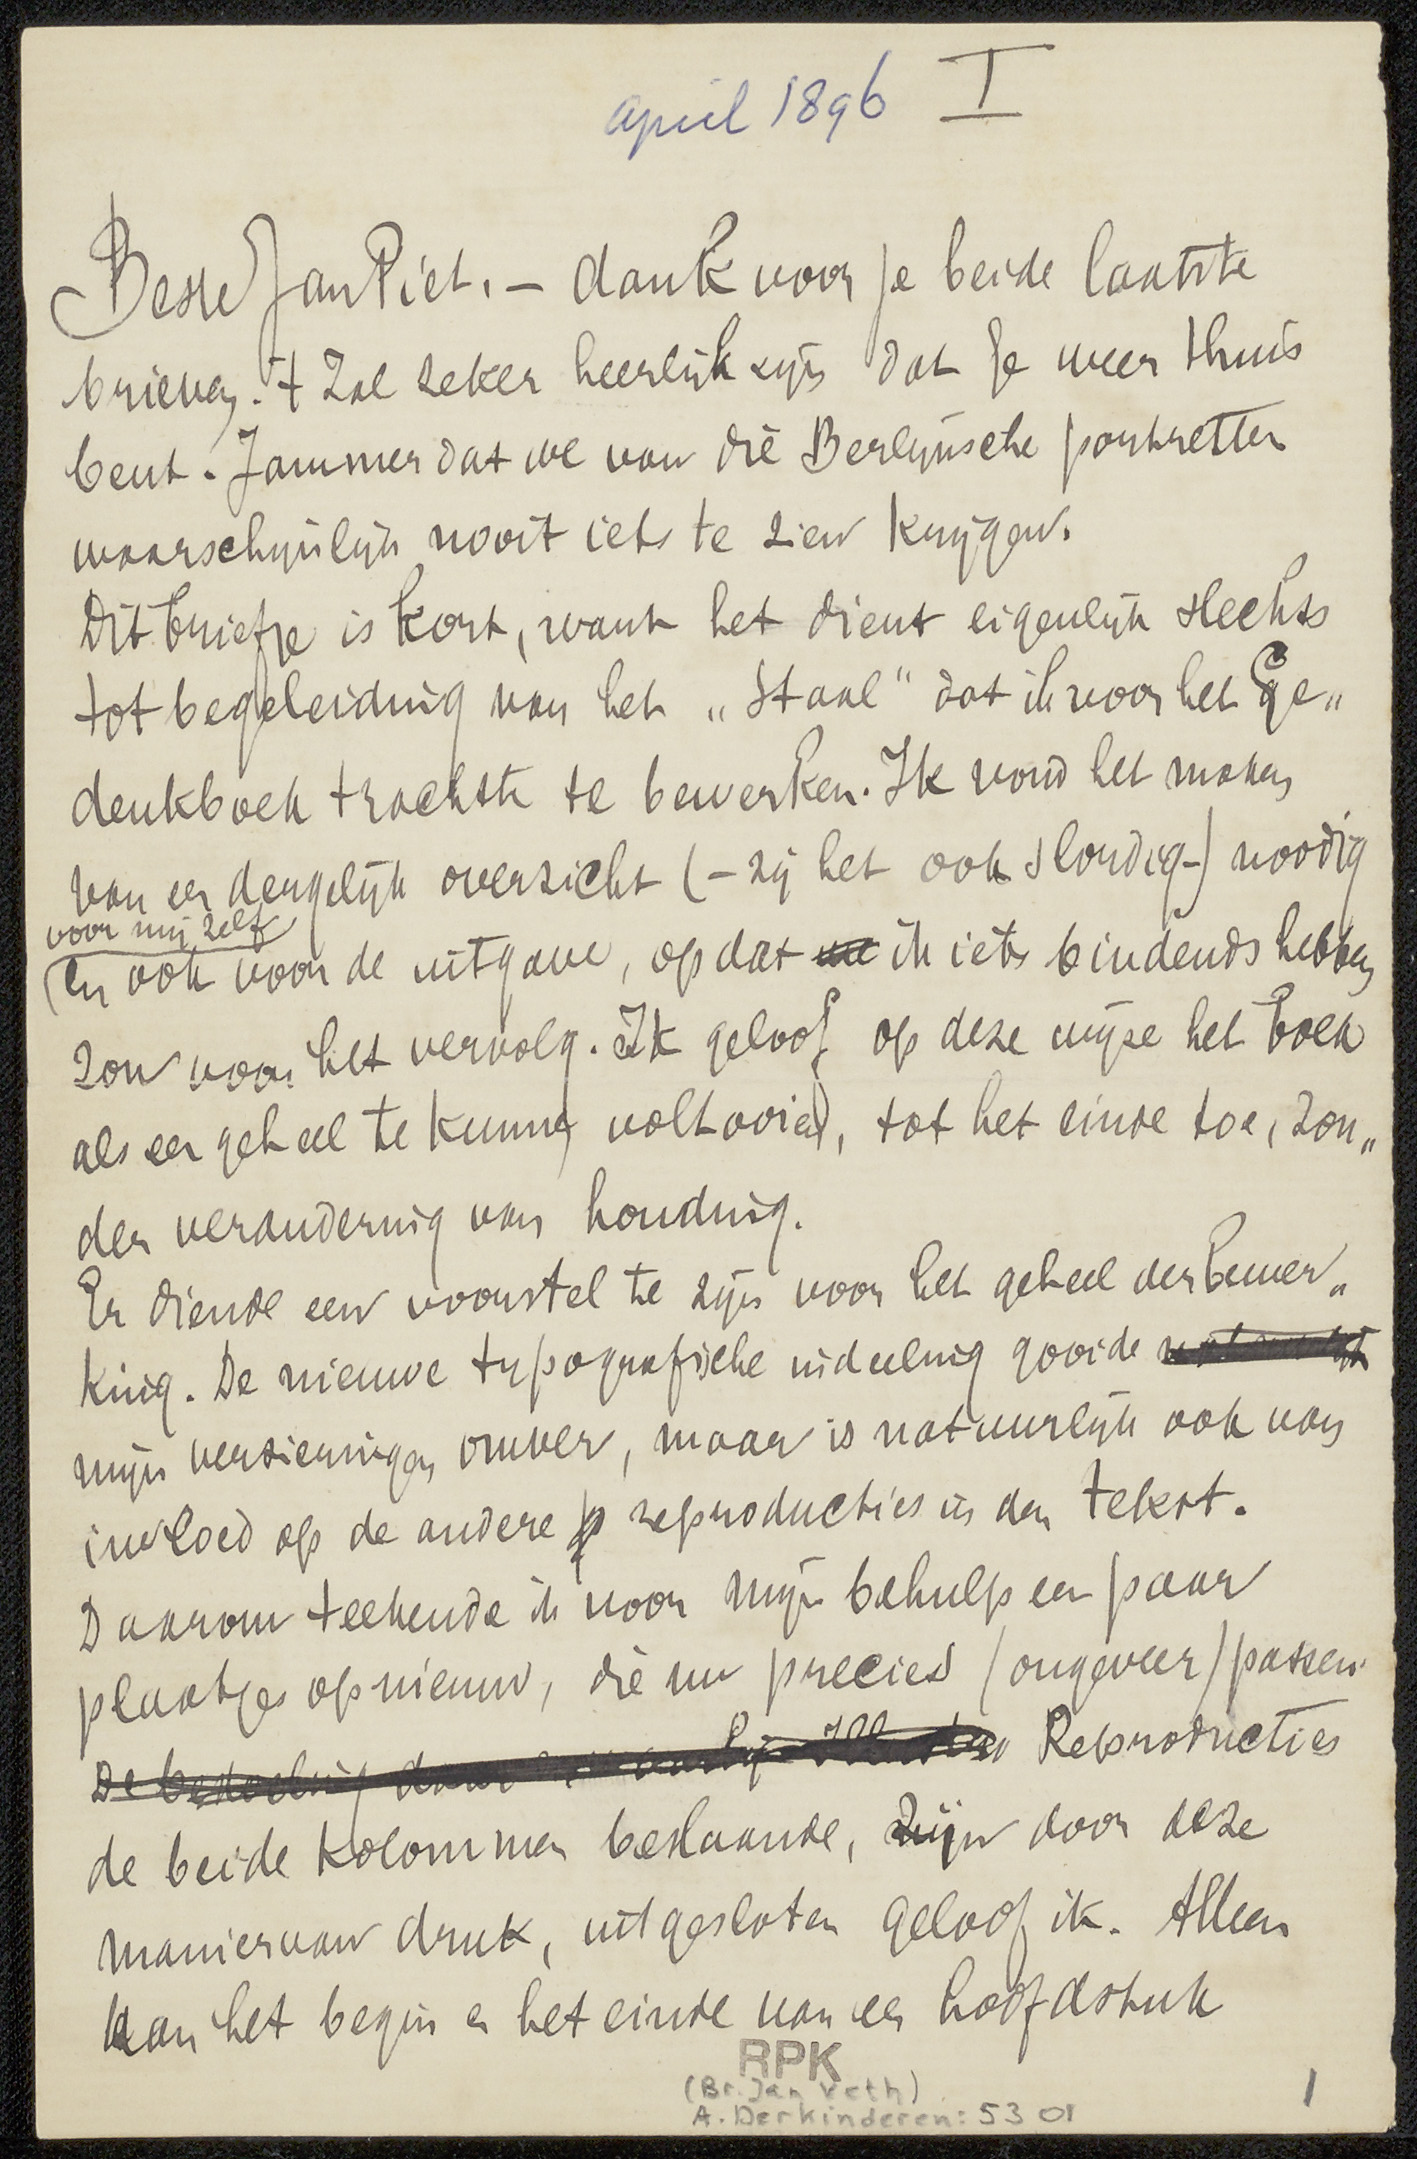 april 1896 I
Beste Jan Piet. – dank voor je beide laatste
brieven. 't Zal zeker heerlijk zijn dat je weer thuis
bent. Jammer dat we van die Berlijnsche portretten
waarschijnlijk nooit iets te zien krijgen.
Dit briefje is kort, want het dient eigenlijk slechts
tot begeleiding van het „Staal" dat ik voor het Ge„
denkboek trachtte te bewerken. Ik vond het maken
van een dergelijk overzicht (– zij het ook slordig –) noodig
voor mij zelf
en ook voor de uitgave, opdat ik iets bindends hebben
zou voor het vervolg. Ik geloof op deze wijze het boek
als een geheel te kunnen voltooien, tot het einde toe, zon„
der verandering van houding.
Er diende een voorstel te zijn voor het geheel der bewer„
king. De nieuwe typografische indeeling gooide
mijn versieringen omver, maar is natuurlijk ook van
invloed op de andere reproducties in den tekst.
Daarom teekende ik voor mijn behulp een paar
plaatjes opnieuw, die nu precies (ongeveer) passen.
De bedoeling Reproducties
de beide kolommen beslaande, zijn door deze
manier van druk, uitgesloten geloof ik. Alleen
kan het begin en het einde van een hoofdstuk
RPK
(Br. Jan Veth)
A. Derkinderen: 53 01
1